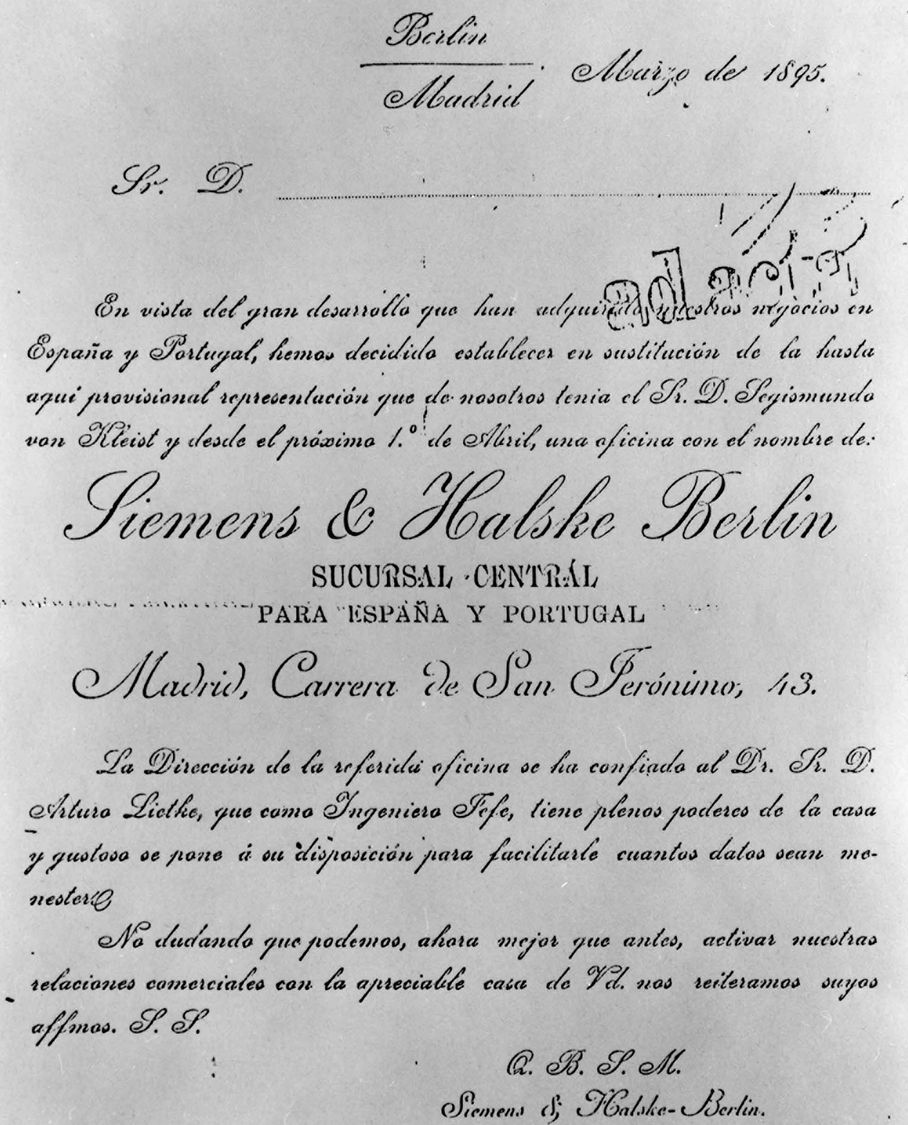 Berlin
Madrid
Marzo de 1895.
Sr. D.
ad acta
En vista del gran desarrollo que han adquirido nuestros negocios en
España y Portugal, hemos decidido establecer en sustitución de la hasta
aquí provisional representación que de nosotros tenia el Sr. D. Segismundo
von Kleist y desde el próximo 1.º de Abril, una oficina con el nombre de:
Siemens & Halske Berlin
SUCURSAL CENTRAL
PARA ESPAÑA Y PORTUGAL
Madrid, Carrera de San Jerónimo, 43.
La Dirección de la referida oficina se ha confiado al Dr. Sr. D.
Arturo Lietke, que como Ingeniero Jefe, tiene plenos poderes de la casa
y gustoso se pone á su disposición para facilitarle cuantos datos sean me-
nester.
No dudando que podemos, ahora mejor que antes, activar nuestras
relaciones comerciales con la apreciable casa de Vd. nos reiteramos suyos
affmos. S. S.
Q. B. S. M.
Siemens & Halske-Berlin.